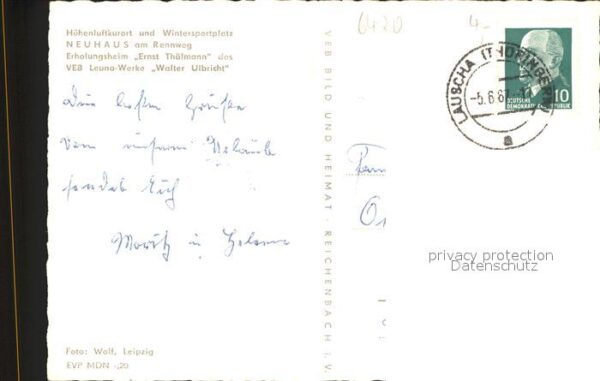 0420
4.-
Höhenluftkurort und Wintersportplatz
NEUHAUS am Rennweg
Erholungsheim „Ernst Thälmann" des
VEB Leuna-Werke „Walter Ulbricht"
LAUSCHA (THÜRINGEN)
-5.6.67
a
DEUTSCHE
DEMOKRATISCHE REPUBLIK
10
Die besten Grüße
von unserem Urlaub
sendet Euch
Moritz u.
VEB BILD UND HEIMAT · REICHENBACH i. V.
Fam
privacy protection
Datenschutz
Foto: Wolf, Leipzig
EVP MDN -,20